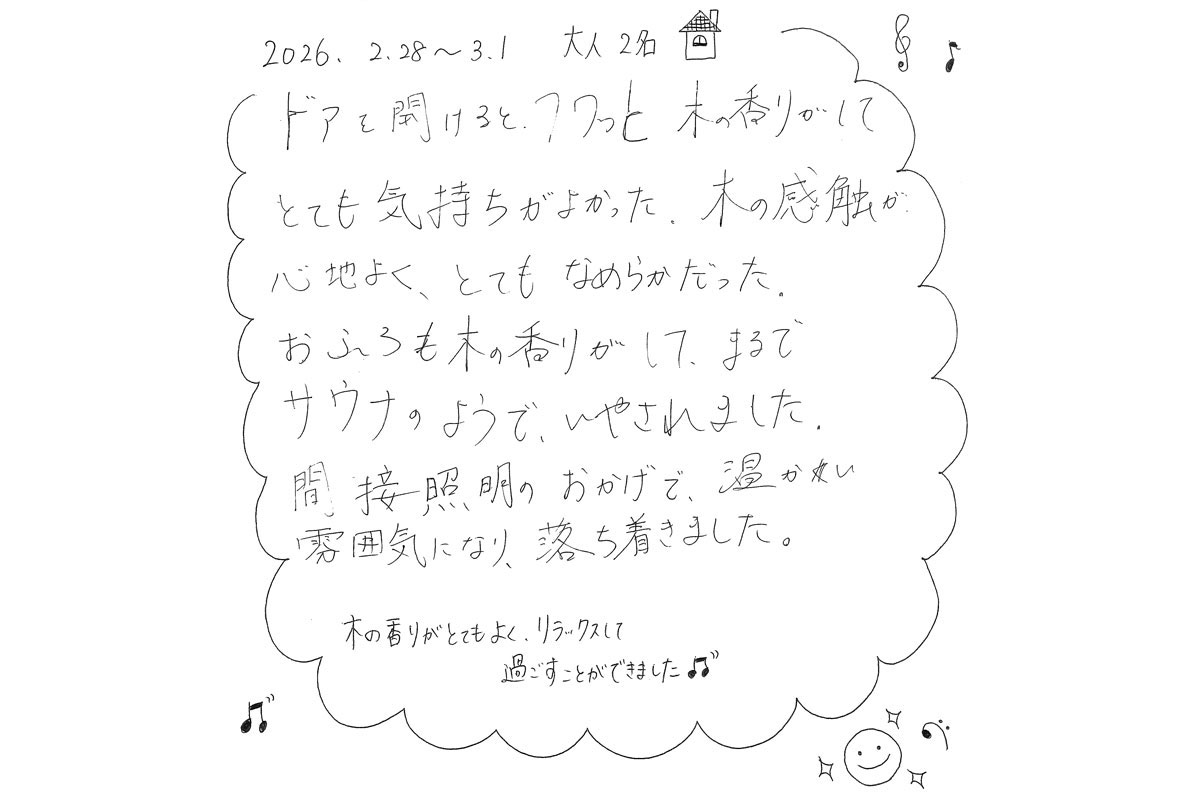 2026. 2.28～3.1 大人 2名
ドアを開けると、フワっと 木の香りがして
とても気持ちがよかった。木の感触が
心地よく、とても なめらかだった。
おふろも木の香りがして、まるで
サウナのようで、いやされました。
間接照明の おかげで、温かい
雰囲気になり、落ち着きました。
木の香りがとてもよく、リラックスして
過ごすことができました